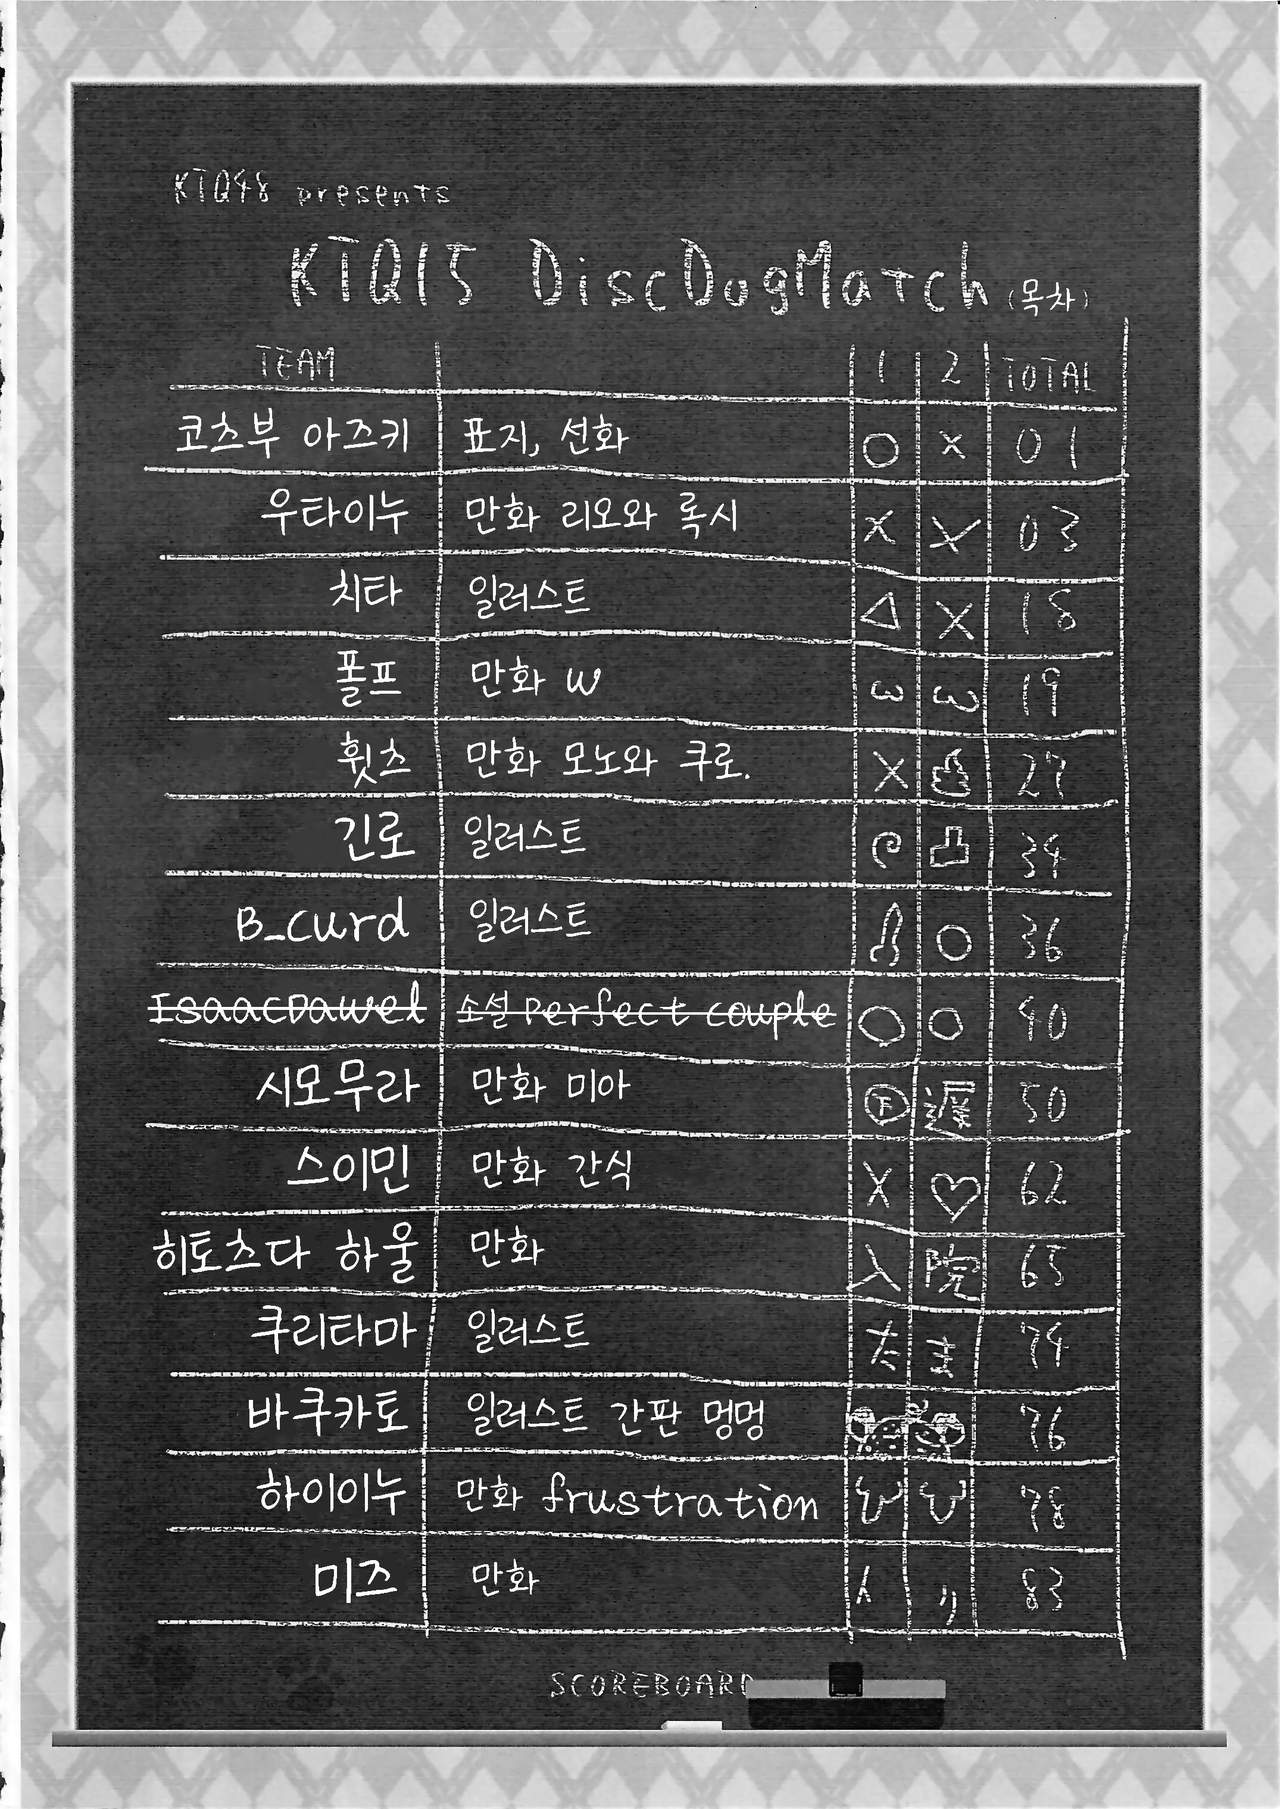 KTQ48 presents
KTQ15 DiscDogMatch (목차)
TEAM 1 2 TOTAL
코츠부 아즈키 표지, 선화 ○ × 01
우타이누 만화 리오와 록시 × × 03
치타 일러스트 △ × 18
폴프 만화 w ω ω 19
휫츠 만화 모노와 쿠로. × 27
긴로 일러스트 34
B_curd 일러스트 ○ 36
IsaacDawel 소설 Perfect couple ○ ○ 40
시모무라 만화 미아 下 遅 50
스이민 만화 간식 × ♡ 62
히토츠다 하울 만화 入 院 65
쿠리타마 일러스트 た ま 74
바쿠카토 일러스트 간판 멍멍 76
하이이누 만화 frustration 78
미즈 만화 83
SCOREBOARD